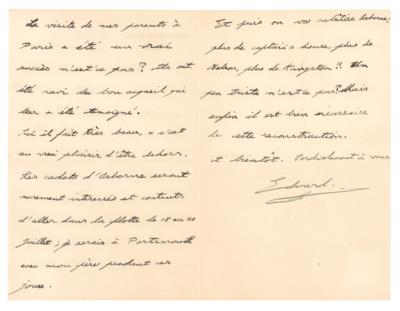 La visite de mes parents à
Paris a été un vrai
succès n'est ce pas? Ils ont
été ravi du bon accueil qui
leur a été temoigné.
Ici il fait très beau, x c'est
un vrai plaisir d'être dehors.
Les cadets d'Osborne seront
surement interessés et contents
d'aller dans la flotte de 18 au 22
Juillet; je serais à Portsmouth
avec mon père pendant ces
jours.
Et puis on va refaire Osborne;
plus de captain's house, plus de
Nelson, plus de Kingston!! Un
peu triste n'est ce pas? Mais
enfin il est bien nécessaire
de cette reconstruction.
A bientôt. Cordialement à vous
Edward.